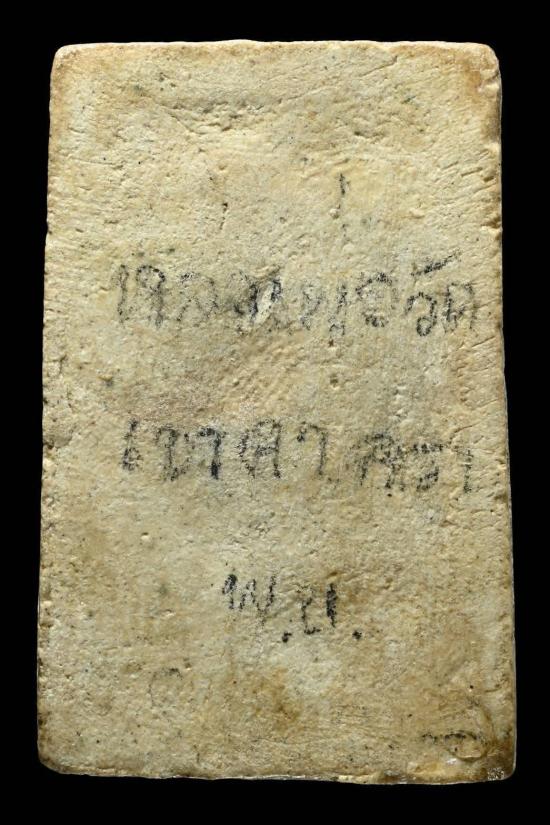 หลวงพ่อวัด
เขาตาเครา
พ.บ.